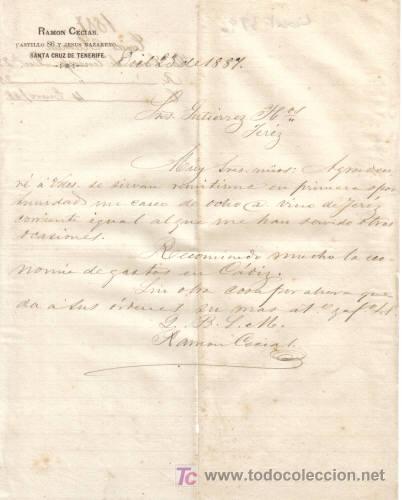 RAMON CECIAR.
CASTILLO 86 Y JESUS NAZARENO.
SANTA CRUZ DE TENERIFE.
Dic.e 23 de 1887.
Srs. Gutierrez Hos
Jeréz
Muy Sres. mios: Agradece
ré á Vdes. se sirvan remitirme en primera opor
tunidad un casco de ocho @ vino de Jeréz
corriente igual al que me han servido otras
ocasiones.
Recomiendo mucho la eco
nomia de gastos en Cádiz.
Sin otra cosa por ahora que
da á sus órdenes su mas at.o y af.o S.S.
Q. B. S. M.
Ramon Ceciar
TC todocoleccion
www.todocoleccion.net